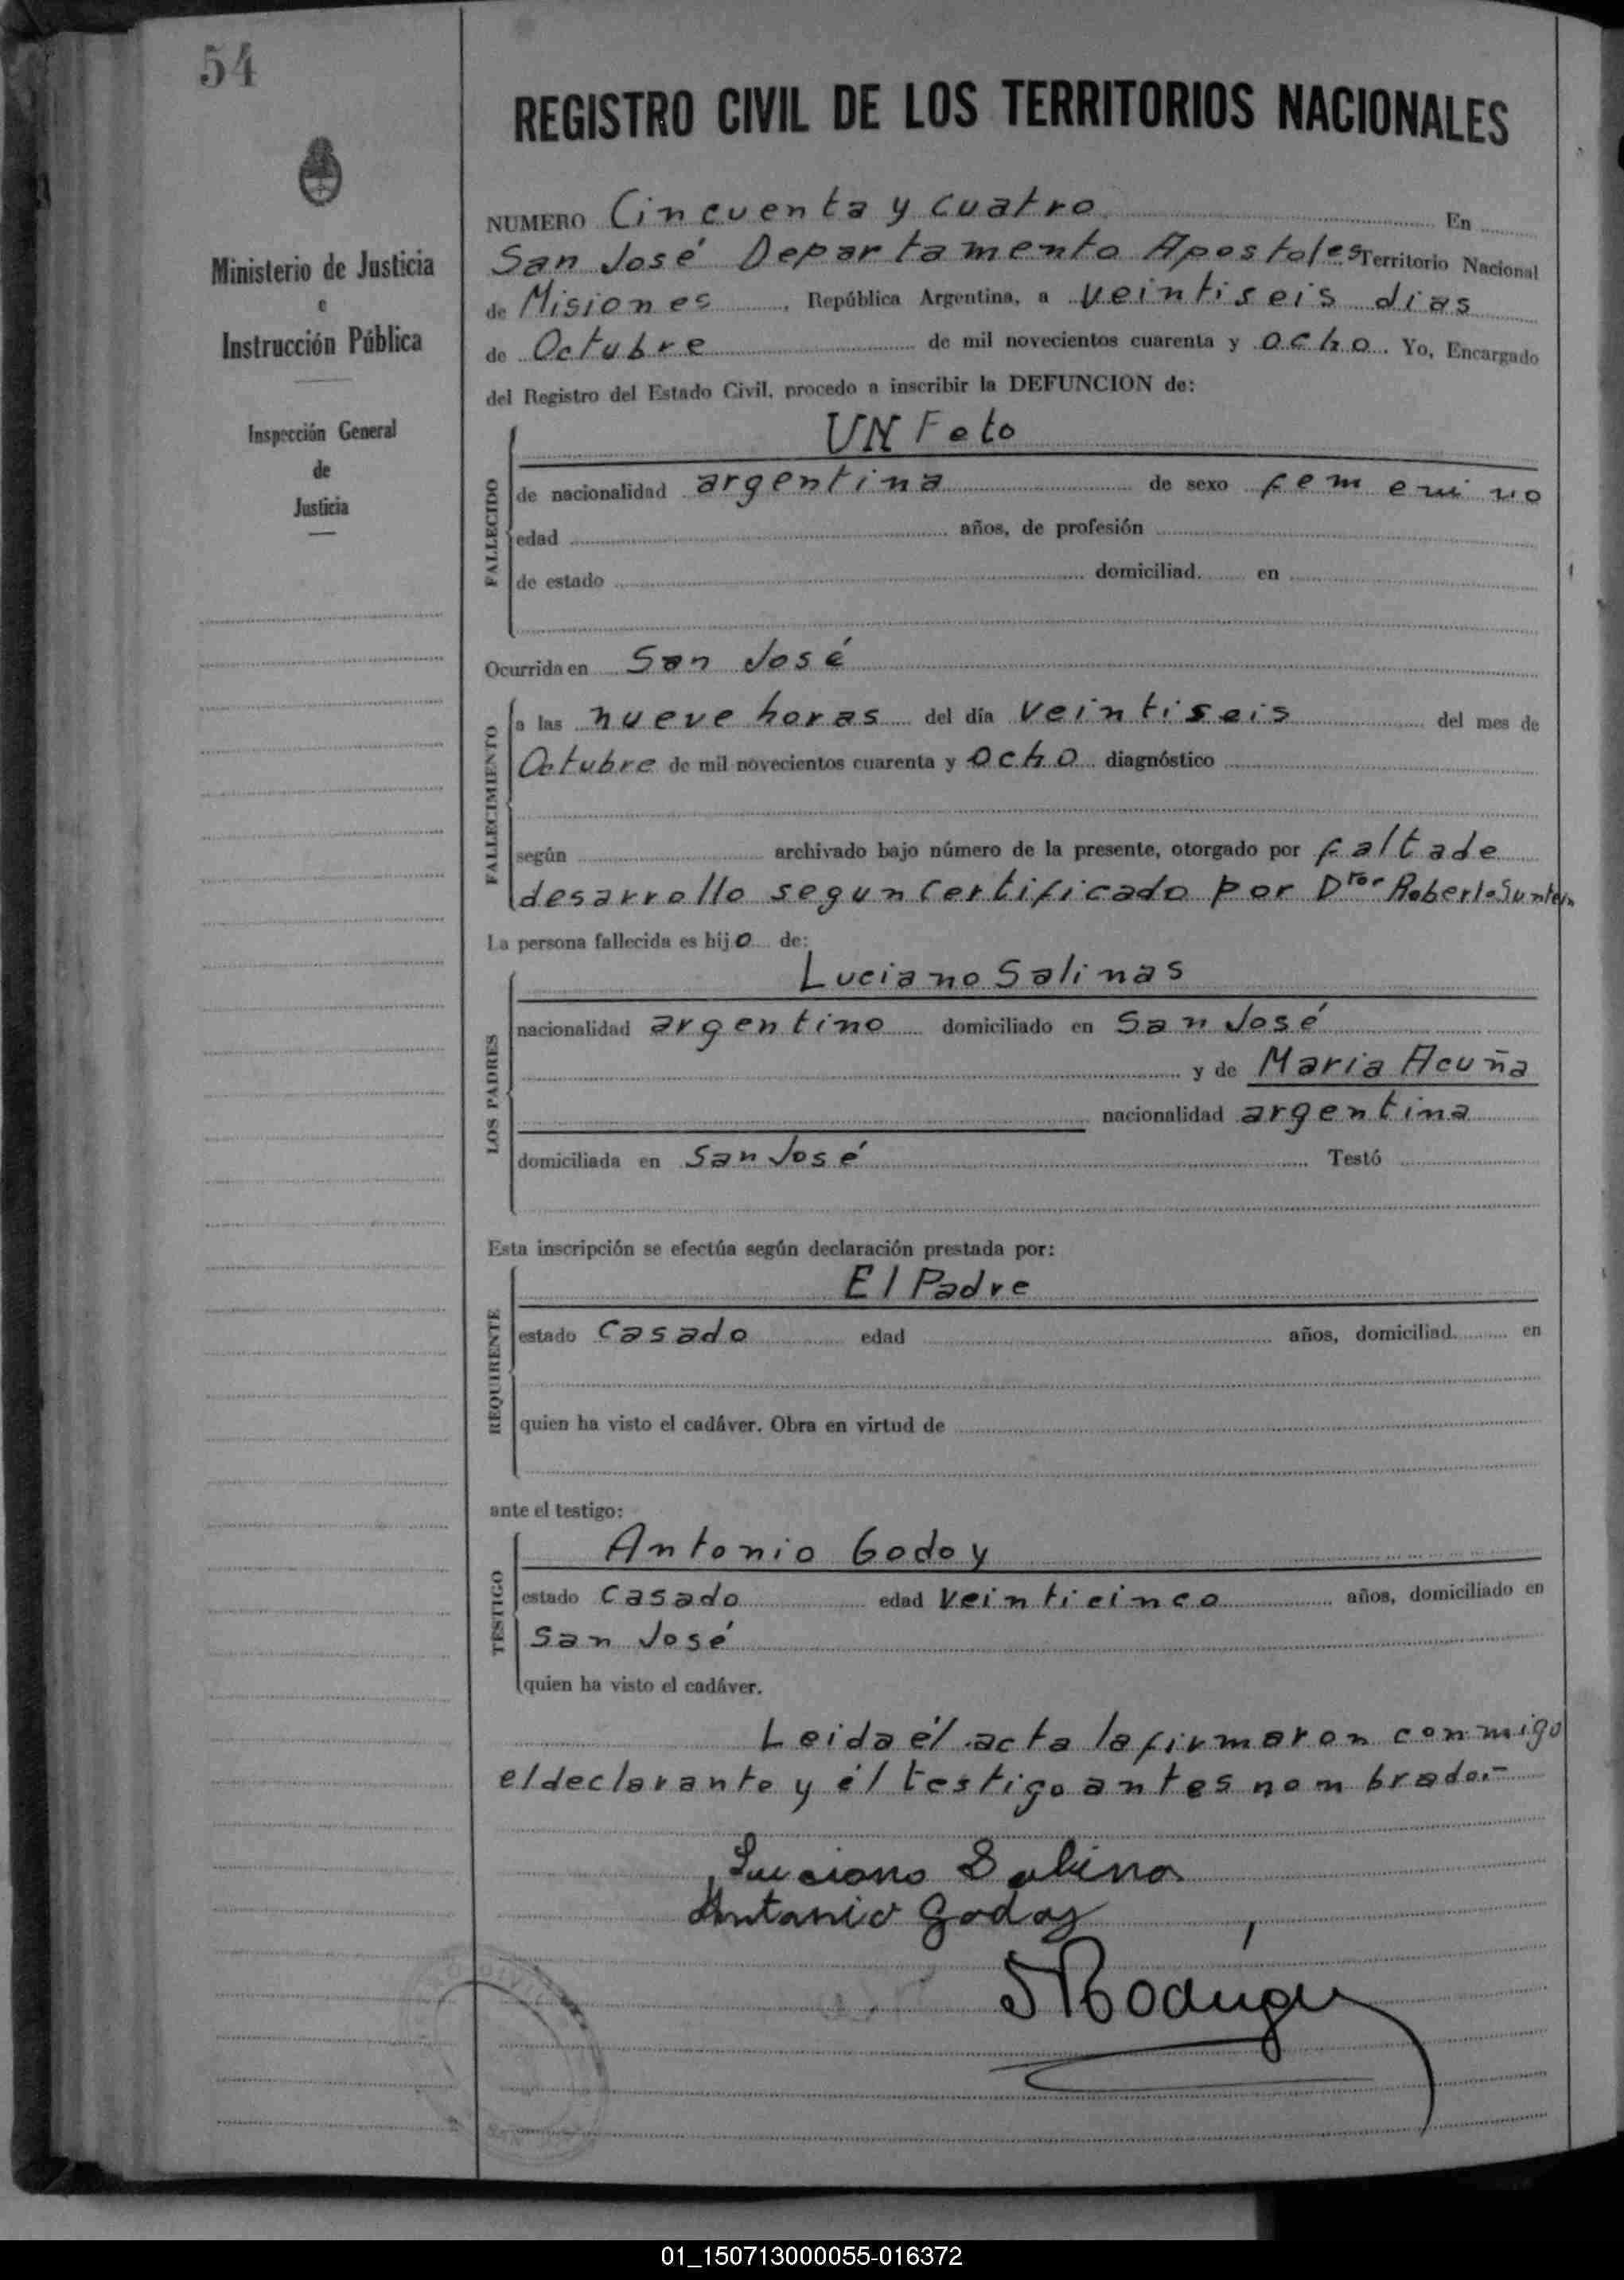 54
Ministerio de Justicia
e
Instrucción Pública
Inspección General
de
Justicia
REGISTRO CIVIL DE LOS TERRITORIOS NACIONALES
NUMERO Cincuenta y cuatro En
San José Departamento Apostoles Territorio Nacional
de Misiones, República Argentina, a veintiseis dias
de Octubre de mil novecientos cuarenta y ocho. Yo, Encargado
del Registro del Estado Civil, procedo a inscribir la DEFUNCION de:
FALLECIDO
UN Feto
de nacionalidad argentina de sexo femenino
edad años, de profesión
de estado domiciliad en
Ocurrida en San José
FALLECIMIENTO
a las nueve horas del día veintiseis del mes de
Octubre de mil novecientos cuarenta y ocho diagnóstico
según archivado bajo número de la presente, otorgado por falta de
desarrollo segun certificado por Dtor Roberto
La persona fallecida es hijo de:
LOS PADRES
Luciano Salinas
nacionalidad argentino domiciliado en San José
y de Maria Acuña
nacionalidad argentina
domiciliada en San José Testó
Esta inscripción se efectúa según declaración prestada por:
REQUIRENTE
El Padre
estado Casado edad años, domiciliad en
quien ha visto el cadáver. Obra en virtud de
ante el testigo:
TESTIGO
Antonio Godoy
estado Casado edad veinticinco años, domiciliado en
San José
quien ha visto el cadáver.
Leida él acta la firmaron conmigo
el declarante y él testigo antes nombrado.-
Luciano Salina
Antonio Godoy
01_150713000055-016372